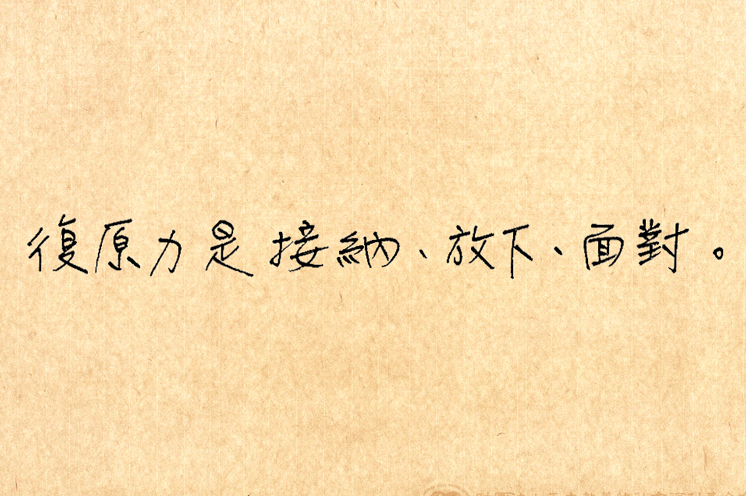 復原力是接納、放下、面對。